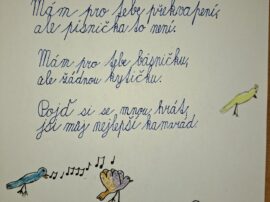 Mám pro tebe překvapení,
ale písnička to není.
Mám pro tebe básničku,
ale žádnou kytičku.
Pojď si se mnou hrát,
jsi můj nejlepší kamarád.